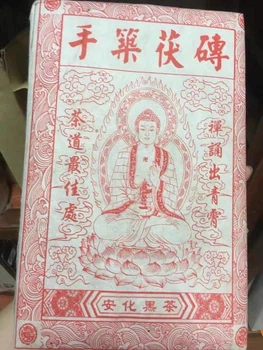 手築茯磚
禪誦出青霄
茶道最佳處
安化黑茶